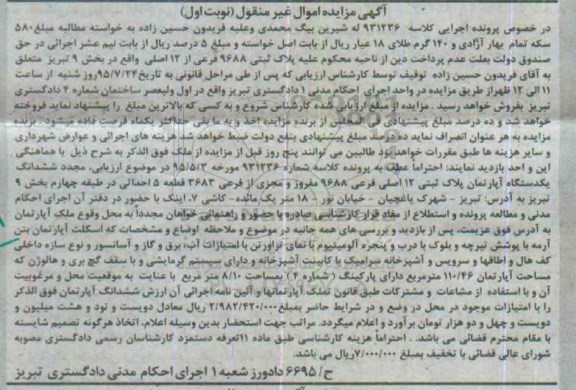 آگهی مزایده اموال غیر منقول (نوبت اول)
در خصوص پرونده اجرایی کلاسه ۹۳۱۲۳۶ له شیرین بیگ محمدی وعلیه فریدون حسین زاده به خواسته مطالبه مبلغ۵۸۰
سکه تمام بهار آزادی و ۱۴۰ گرم طلای ۱۸ عیار ریال از بابت اصل خواسته و مبلغ ۵ درصد ریال از بابت نیم عشر اجرائی در حق
صندوق دولت بعلت عدم پرداخت دین از ناحیه محکوم علیه پلاک ثبتی ۹۶۸۸ فرعی از ۱۲ اصلی واقع در بخش ۹ تبریز متعلق
به آقای فریدون حسین زاده توقیف توسط کارشناس ارزیابی که پس از طی مراحل قانونی به تاریخ۹۵/۷/۲۴روز شنبه از ساعت
۱۱ الی ۱۲ ظهراز طریق مزایده در واحد اجرای احکام مدنی ۱ دادگستری تبریز واقع در اول ولیعصر ساختمان شماره ۴ دادگستری
تبریز بفروش خواهد رسید . مزایده از مبلغ ارزیابی شده کارشناس شروع و به کسی که بالاترین مبلغ را پیشنهاد نماید فروخته
خواهد شد و ده درصد مبلغ پیشنهادی فی المجلس از برنده مزایده اخذ و به مابقی حداکثر یکماه فرصت داده میشود. برنده
مزایده به هر عنوان انصراف نماید ده درصد مبلغ پیشنهادی بنفع دولت ضبط خواهد شد هزینه های اجرائی و عوارض شهرداری
و سایر هزینه ها طبق مقررات خواهد بود طالبین می توانند پنج روز قبل از مزایده از ملک فوق الذکر به شرح ذیل با هماهنگی
این و احد بازدید نمایند: احتراماً عطف به پرونده کلاسه شماره ۹۳۱۲۳۶ مورخه ۹۵/۵/۳ در موضوع ارزیابی، مجدد ششدانگ
یکدستگاه آپارتمان پلاک ثبتی ۱۲ اصلی فرعی ۹۶۸۸ مفروز و مجزی از فرعی ۳۶۸۳ قطعه ۵ احداثی در طبقه چهارم بخش ۹
تبریز به آدرس: تبریز - شهرک یاغچیان - خیابان نور - ۱۸ متر یک مانده - کاشی ۷، اینک با حضور در دفتر آن اجرای احکام
مدنی و مطالعه پرونده و استطلاع از مفاد قرار کارشناسی صادره با حضور و راهنمائی خواهان مجدداً به محل وقوع ملک آپارتمان
به آدرس فوق عزیمت، پس از بازدید و بررسی های همه جانبه در موضوع و ملاحظه اوضاع و مشخصات که اسکلت آپارتمان بتن
آرمه با پوشش تیرچه و بلوک با درب و پنجره آلومینیوم با نمای تراورتن با امتیازات آب، برق و گاز و آسانسور و نوع سازه داخلی
کف هال و اطاقها و سرویس و آشپزخانه سرامیک با کابینت آشپزخانه و دارای سیستم گرمایشی و با سقف گچ بری و هالوژن که
مساحت آپارتمان ۱۱۰/۴۶ مترمربع دارای پارکینگ (شماره ۴) بمساحت ۸/۱۰ متر مربع با عنایت به موقعیت محل و مرغوبیت
آن و با استفاده از مشاعات و مشترکات طبق قانون تملک آپارتمانها و آئین نامه اجرائی آن ارزش ششدانگ آپارتمان فوق الذکر
را با امتیازات موجود در محل در وضع و در شرایط حاضر بمبلغ۲/۹۸۲/۴۲۰/۰۰۰ ریال معادل دویست و نود و هشت میلیون و
دویست و چهل و دو هزار تومان برآورد و اعلام میگردد. مراتب جهت استحضار بدین وسیله اعلام، اتخاذ هرگونه تصمیم شایسته
با مقام محترم قضائی می باشد . احتراماً هزینه کارشناسی طبق ماده ۱۱تعرفه دستمزد کارشناسان رسمی دادگستری مصوبه
شورای عالی قضائی با تخفیف بمبلغ ۷/۰۰۰/۰۰۰ریال می باشد.
ح/ ۶۶۹۵ دادورز شعبه ۱ اجرای احکام مدنی دادگستری تبریز